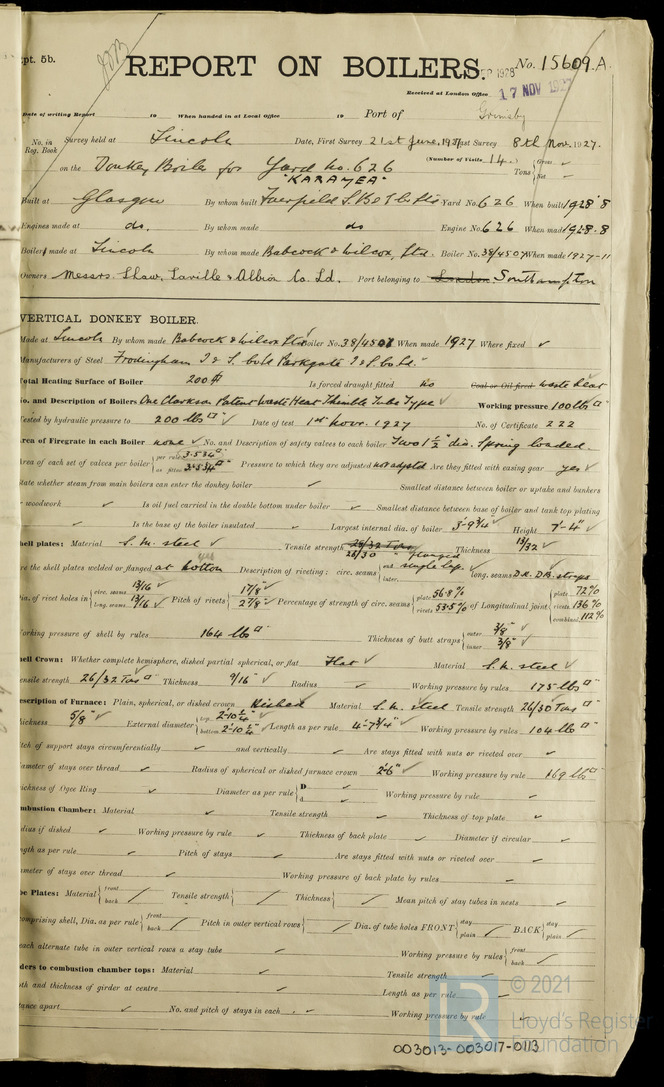 pt. 5b.
REPORT ON BOILERS.
No. 15609.A.
Received at London Office 17 NOV 1927
Date of writing Report 19 When handed in at Local Office 19 Port of Grimsby
No. in Reg. Book Survey held at Lincoln Date, First Survey 21st June, 1927 Last Survey 8th Nov. 1927.
on the Donkey Boiler for Yard No. 626 (Number of Visits 14) Tons Gross Net
"KARAMEA"
Built at Glasgow By whom built Fairfield S.B. & E Co Ltd Yard No. 626 When built 1928.8
Engines made at do. By whom made do Engine No. 626 When made 1928.8
Boilers made at Lincoln By whom made Babcock & Wilcox, Ltd. Boiler No. 38/4507 When made 1927-11
Owners Messrs. Shaw, Saville & Albion Co. Ld. Port belonging to London Southampton
VERTICAL DONKEY BOILER.
Made at Lincoln By whom made Babcock & Wilcox Ltd Boiler No. 38/4507 When made 1927 Where fixed ✓
Manufacturers of Steel Frodingham I & S. Co Ld Parkgate I & S. Co Ld.
Total Heating Surface of Boiler 200 Is forced draught fitted No Coal or Oil fired waste heat
No. and Description of Boilers One Clarkson Patent Waste Heat Thimble Tube Type ✓ Working pressure 100 lbs
Tested by hydraulic pressure to 200 lbs ✓ Date of test 1st Nov. 1927 No. of Certificate 222
Area of Firegrate in each Boiler none ✓ No. and Description of safety valves to each boiler Two 1½" dia. Spring loaded.
Area of each set of valves per boiler per rule 3.53 as fitted 3.534 Pressure to which they are adjusted not adjusted Are they fitted with easing gear yes ✓
State whether steam from main boilers can enter the donkey boiler ✓ Smallest distance between boiler or uptake and bunkers
woodwork ✓ Is oil fuel carried in the double bottom under boiler ✓ Smallest distance between base of boiler and tank top plating
✓ Is the base of the boiler insulated ✓ Largest internal dia. of boiler 3'-9¾" ✓ Height 7'-4" ✓
Shell plates: Material S. M. steel ✓ Tensile strength 28/32 Tons 26/30 flanged Thickness 13/32 ✓
Are the shell plates welded or flanged yes at bottom Description of riveting: circ. seams end single lap. inter. long. seams D.R. D.B. straps
Dia. of rivet holes in circ. seams 13/16 ✓ long. seams 13/16 ✓ Pitch of rivets 1 7/8" ✓ 2 7/8" ✓ Percentage of strength of circ. seams plate 56.8% rivets 53.5% of Longitudinal joint plate 72% rivets 136% combined 112%
Working pressure of shell by rules 164 lbs Thickness of butt straps outer 3/8" ✓ inner 3/8" ✓
Shell Crown: Whether complete hemisphere, dished partial spherical, or flat Flat ✓ Material S. M. steel ✓
Tensile strength 26/32 Tons Thickness 9/16" ✓ Radius ✓ Working pressure by rules 175 lbs
Description of Furnace: Plain, spherical, or dished crown Dished Material S. M. steel Tensile strength 26/30 Tons
Thickness 5/8" ✓ External diameter top 2'-10¼" ✓ bottom 2'-10¼" ✓ Length as per rule 4'-7¾" ✓ Working pressure by rules 104 lbs
Pitch of support stays circumferentially ✓ and vertically ✓ Are stays fitted with nuts or riveted over ✓
Diameter of stays over thread ✓ Radius of spherical or dished furnace crown 2'-6" ✓ Working pressure by rule 169 lbs
Thickness of Ogee Ring ✓ Diameter as per rule D ✓ d ✓ Working pressure by rule ✓
Combustion Chamber: Material ✓ Tensile strength ✓ Thickness of top plate ✓
Radius if dished ✓ Working pressure by rule ✓ Thickness of back plate ✓ Diameter if circular ✓
Length as per rule ✓ Pitch of stays ✓ Are stays fitted with nuts or riveted over ✓
Diameter of stays over thread ✓ Working pressure of back plate by rules ✓
Tube Plates: Material front back Tensile strength Thickness Mean pitch of stay tubes in nests ✓
comprising shell, Dia. as per rule front back Pitch in outer vertical rows Dia. of tube holes FRONT stay plain BACK stay plain
each alternate tube in outer vertical rows a stay tube ✓ Working pressure by rules front back
Girders to combustion chamber tops: Material ✓ Tensile strength ✓
Depth and thickness of girder at centre ✓ Length as per rule ✓
Distance apart ✓ No. and pitch of stays in each ✓ Working pressure by rule ✓
LR
© 2021
Lloyd's Register
Foundation
003013-003017-0113